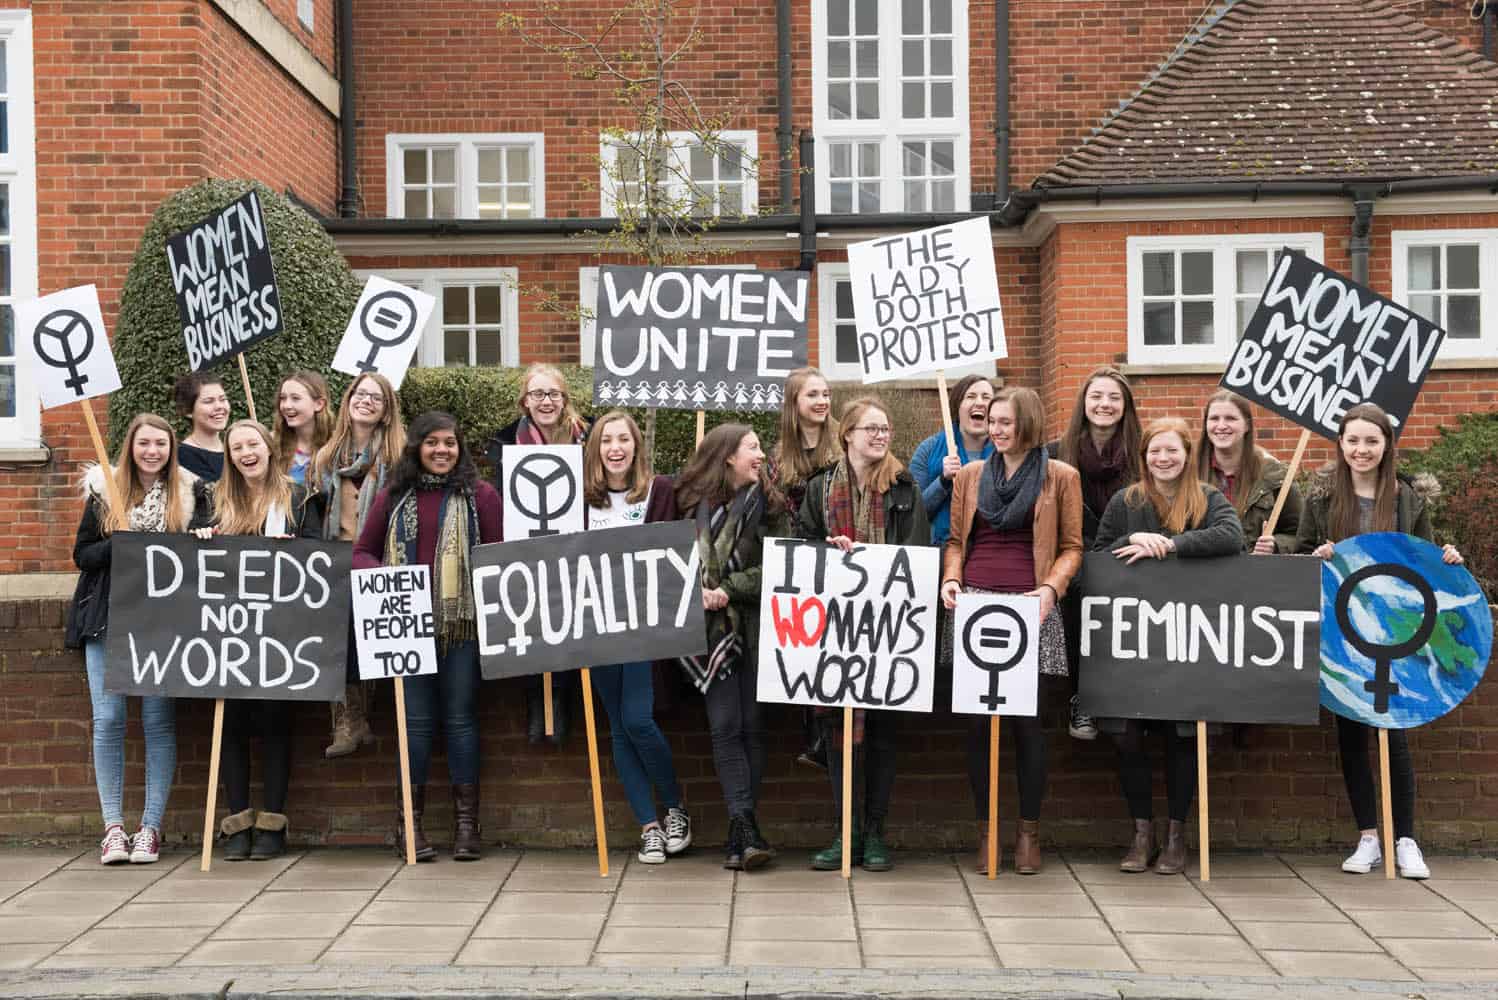 WOMEN
MEAN
BUSINESS
WOMEN
UNITE
THE
LADY
DOTH
PROTEST
WOMEN
MEAN
BUSINE
DEEDS
NOT
WORDS
WOMEN
ARE
PEOPLE
TOO
EQUALITY
IT'S A
WOMAN'S
WORLD
FEMINIST